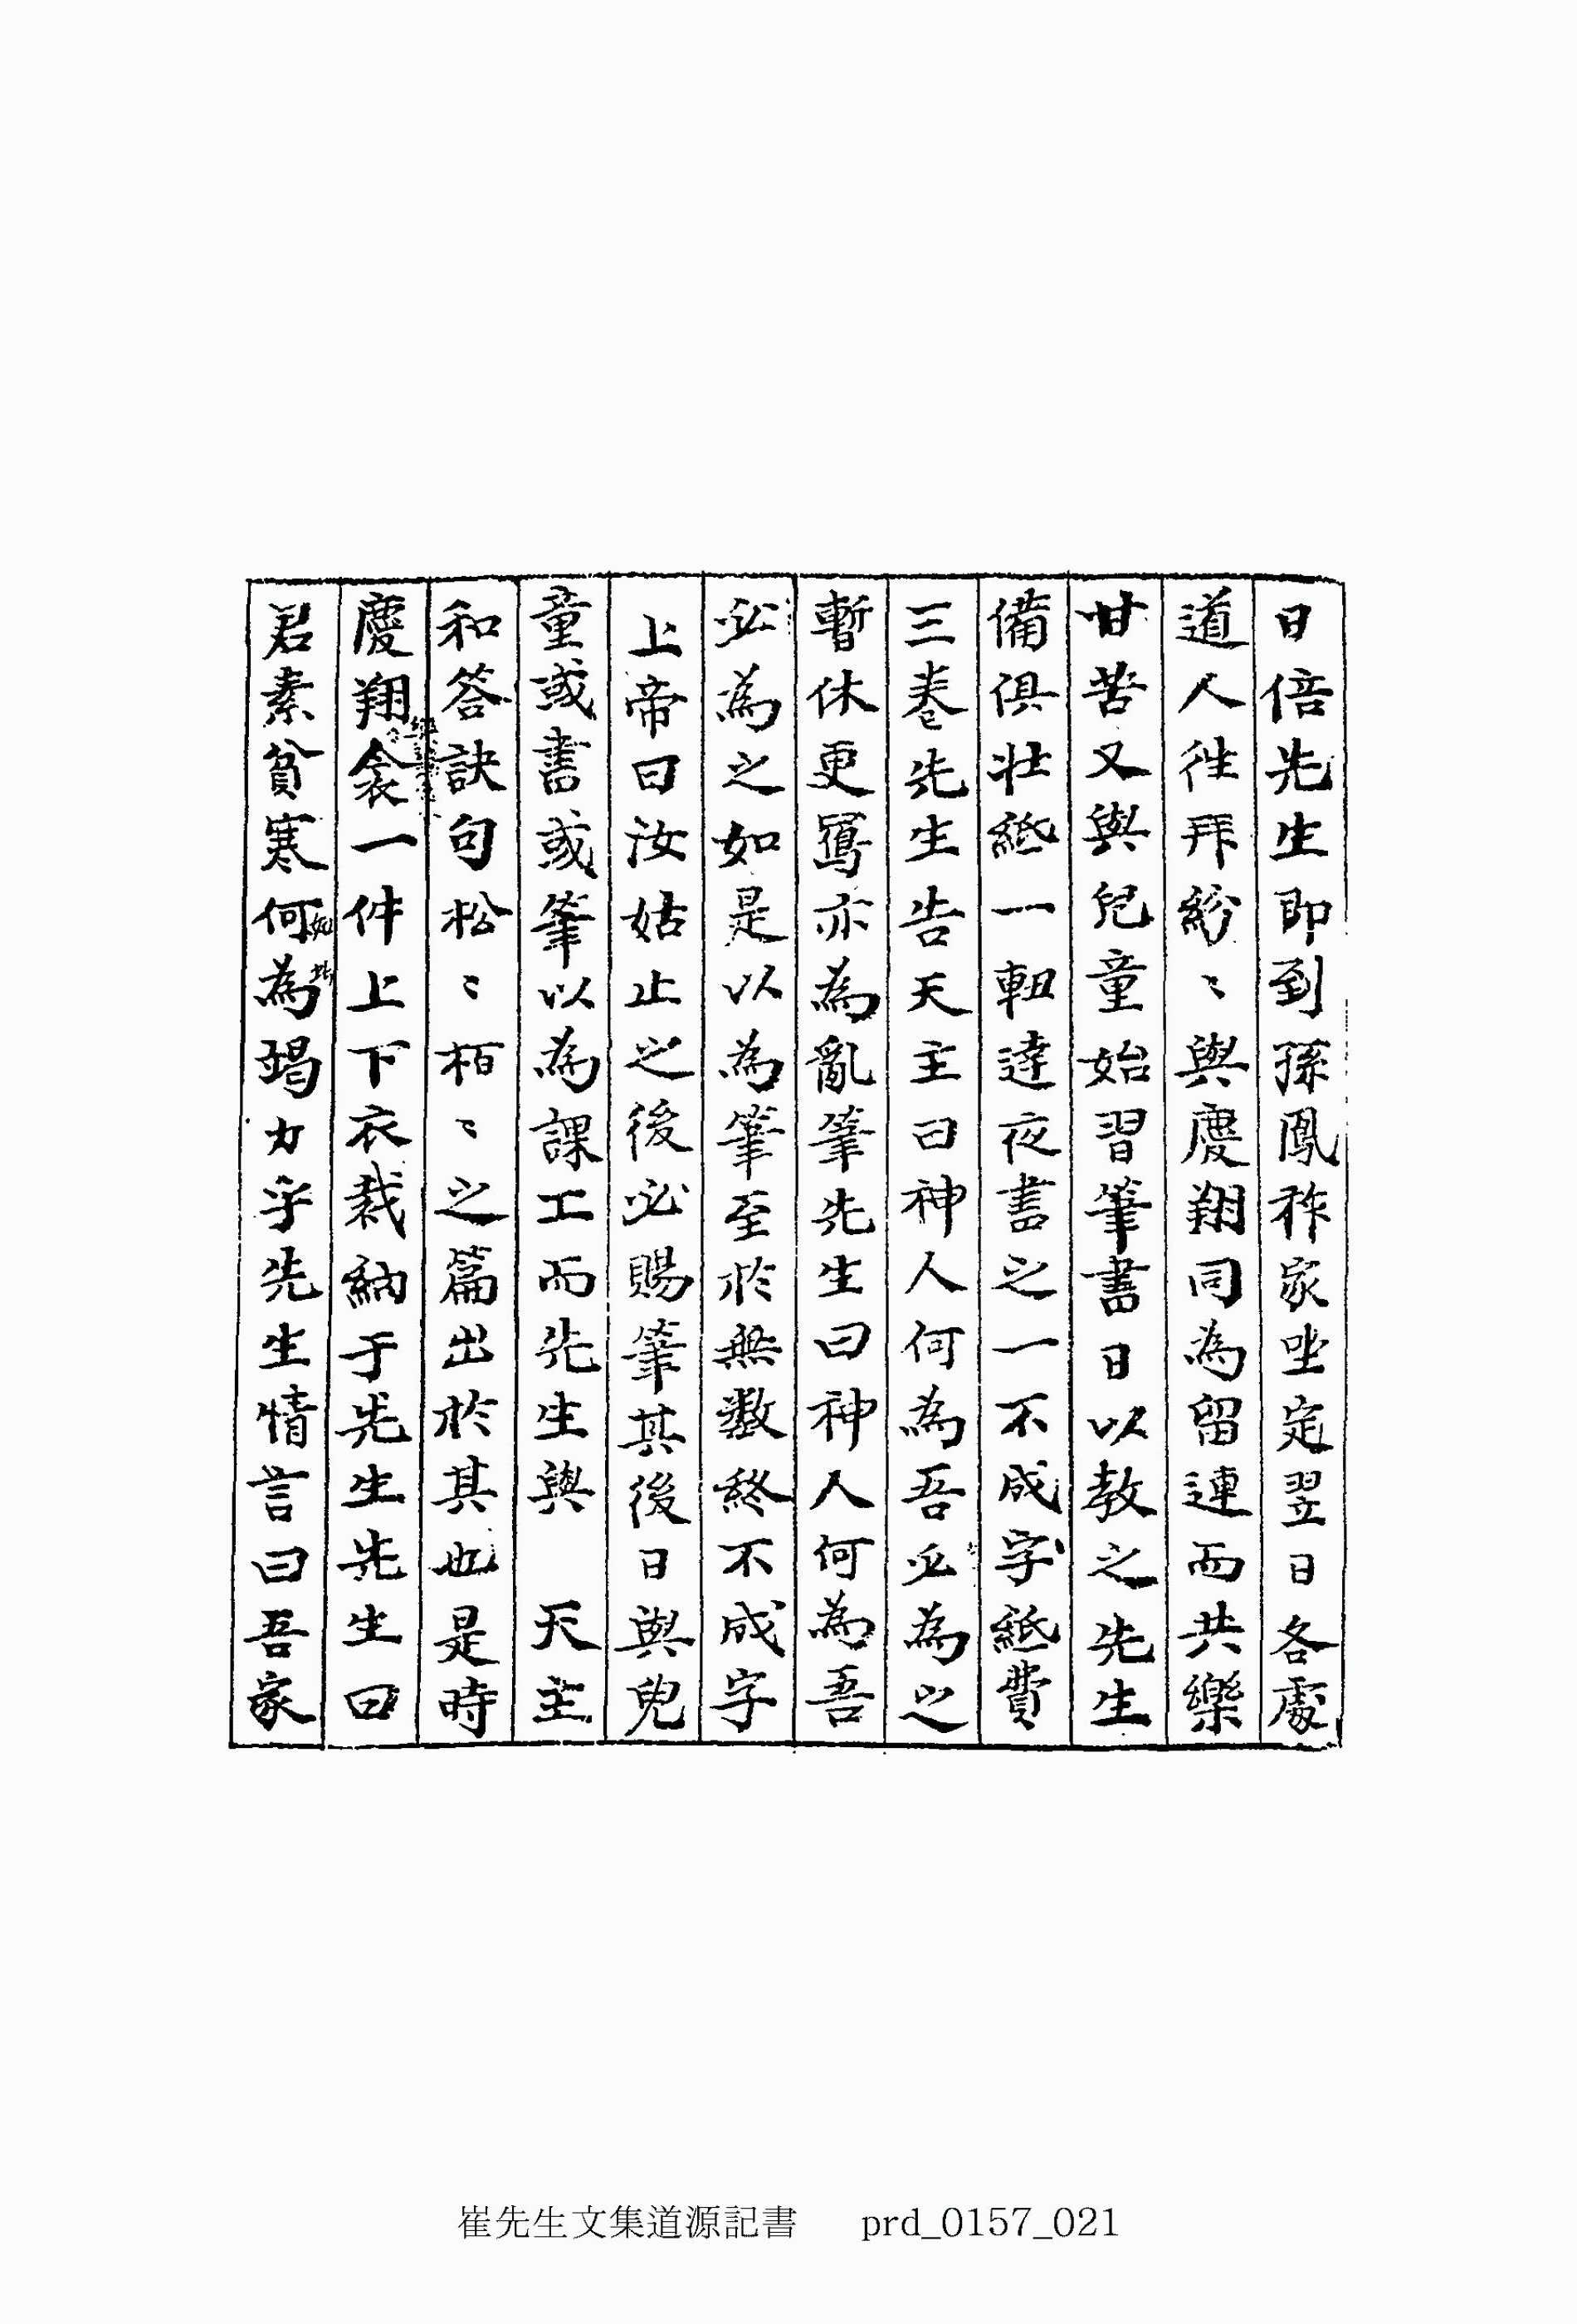 日倍先生即到孫鳳祚家坐定翌日各處
道人往拜紛〻與慶翔同為留連而共樂
甘苦又與兒童始習筆書日以教之先生
備俱壯紙一軸達夜書之一不成字紙費
三卷先生告天主曰神人何為吾必為之
暫休更寫亦為亂筆先生曰神人何為吾
必為之如是以為筆至於無數終不成字
上帝曰汝姑止之後必賜筆其後日與兒
童或書或筆以為課工而先生與　天主
和答訣句松〻栢〻之篇出於其也是時
慶翔衾一件上下衣裁納于先生先生曰
君素貧寒何如此為竭力乎先生情言曰吾家
崔先生文集道源記書 prd_0157_021